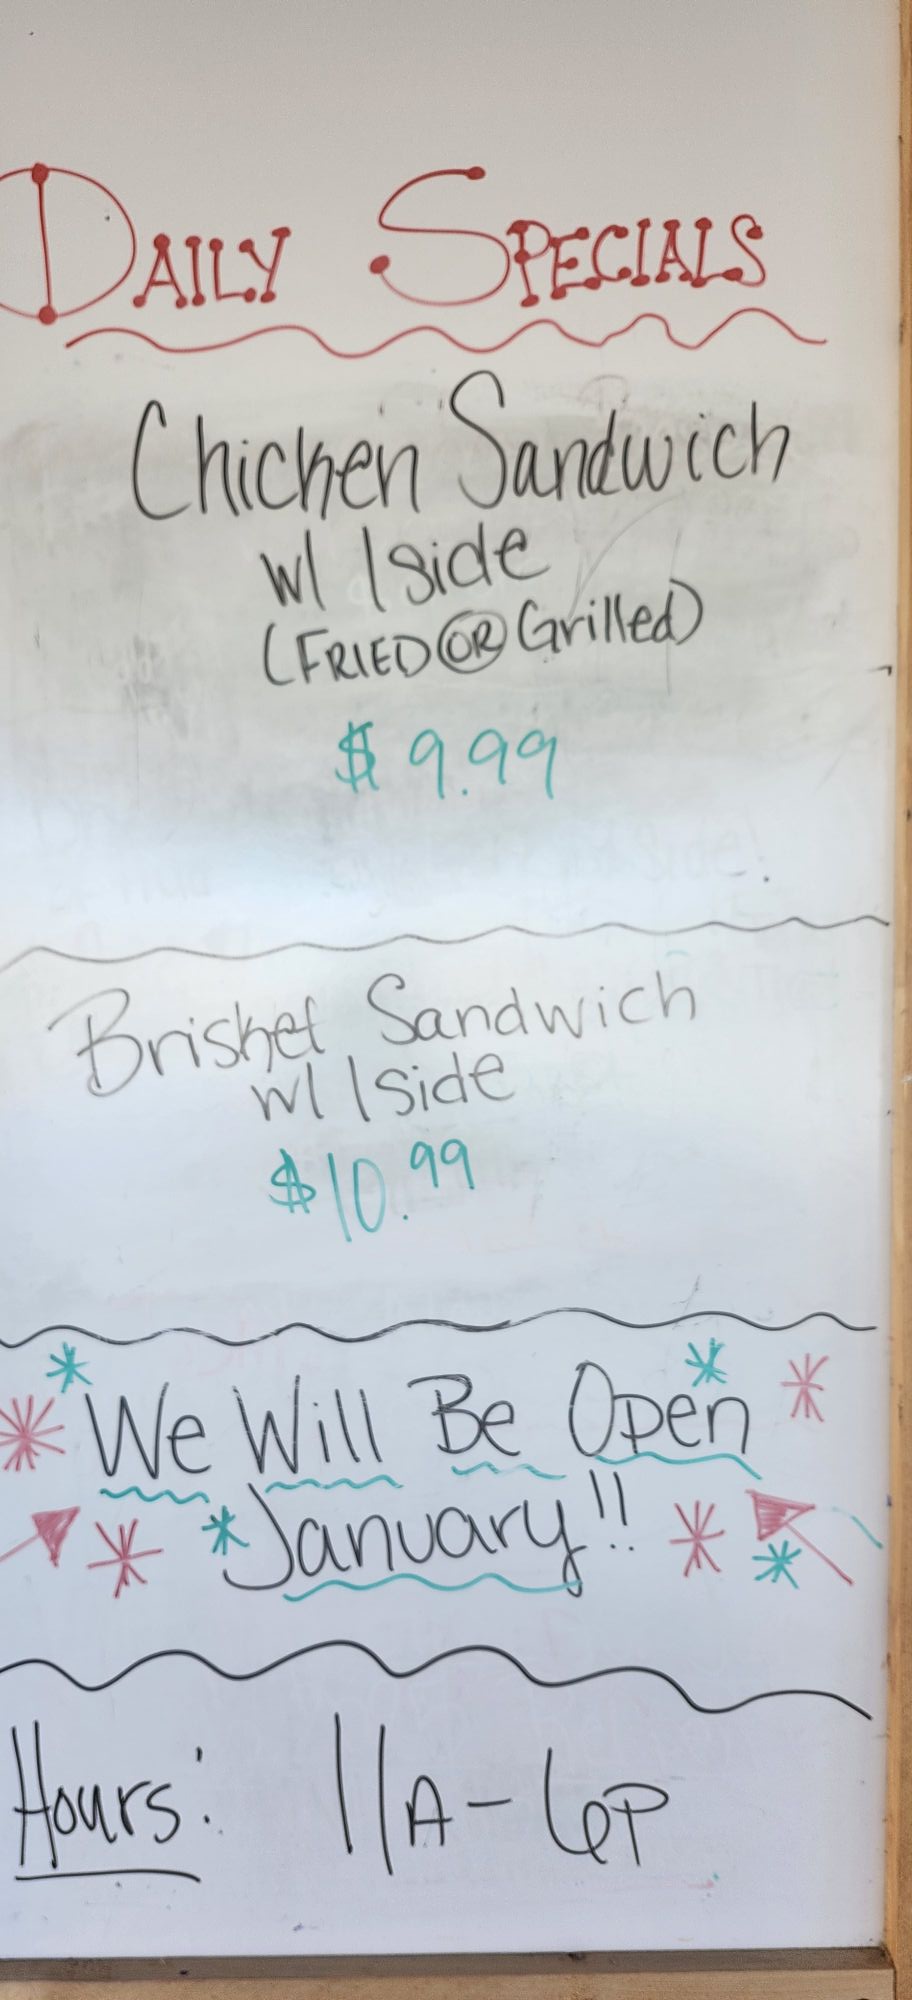 DAILY SPECIALS
Chicken Sandwich
w/ 1 side
(FRIED OR Grilled)
$ 9.99
Brisket Sandwich
w/ 1 side
$10.99
We Will Be Open
January!!
Hours: 11A - 6P